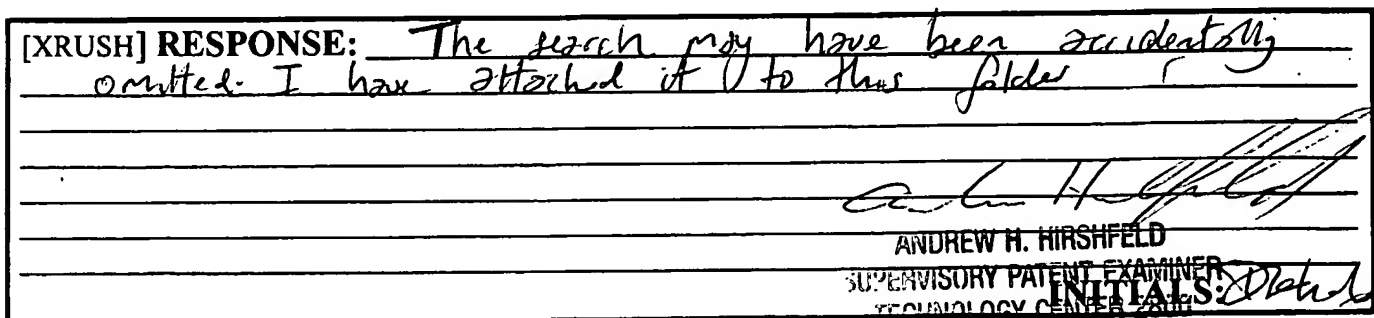 [XRUSH] RESPONSE: The search may have been accidentally
omitted. I have attached it to this folder
ANDREW H. HIRSHFELD
SUPERVISORY PATENT EXAMINER
INITIALS:
TECHNOLOGY CENTER